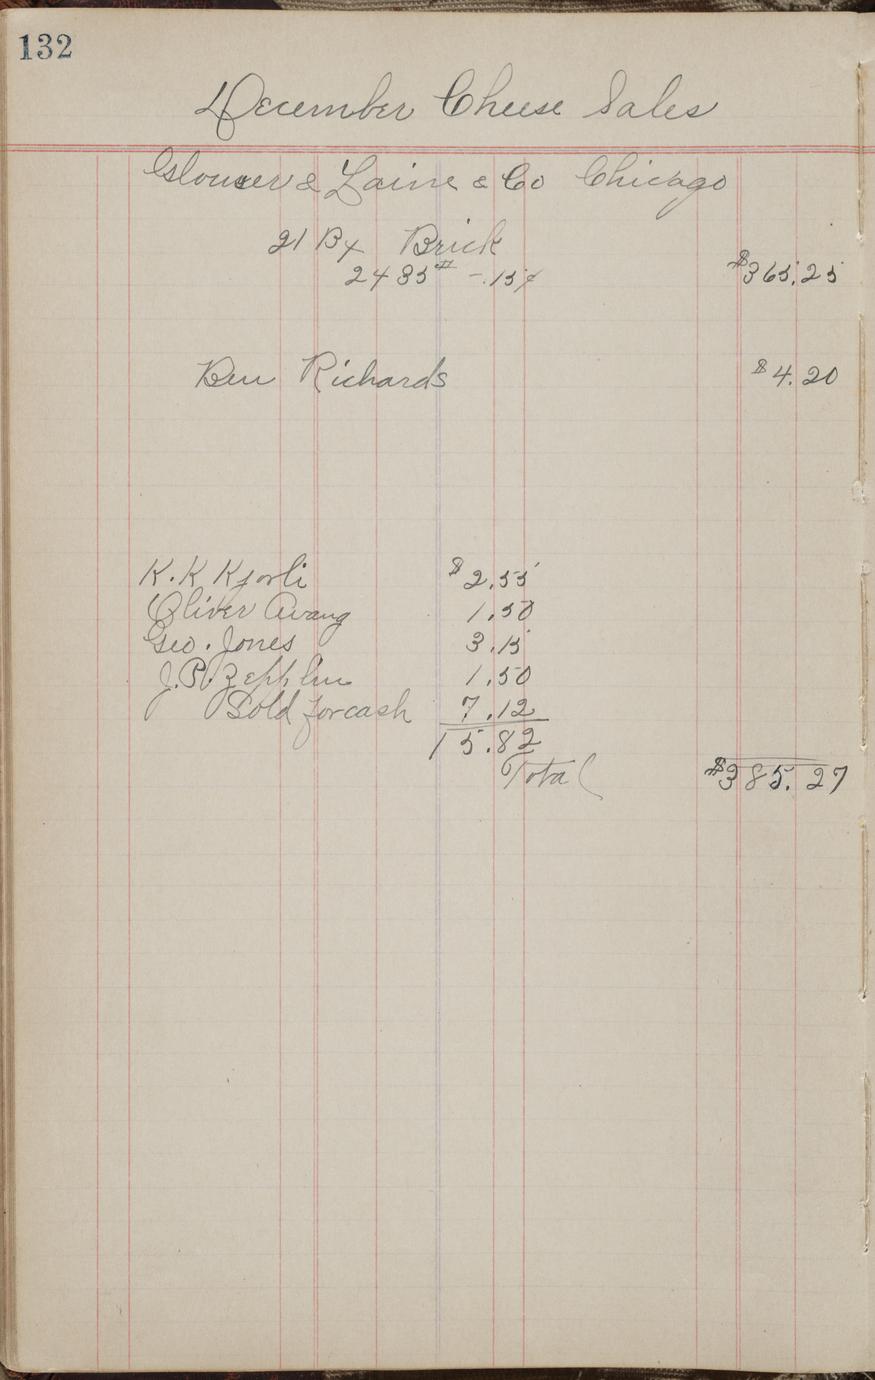 132
December Cheese Sales
Glouser & Laine & Co Chicago
21 Bx Brick
2435# - .15¢ $365.25
Ben Richards $4.20
K. K Kjorli $2.55
Oliver Avang 1.50
Geo. Jones 3.15
J. P. Zepplin 1.50
Sold for cash 7.12
15.82
Total $385.27